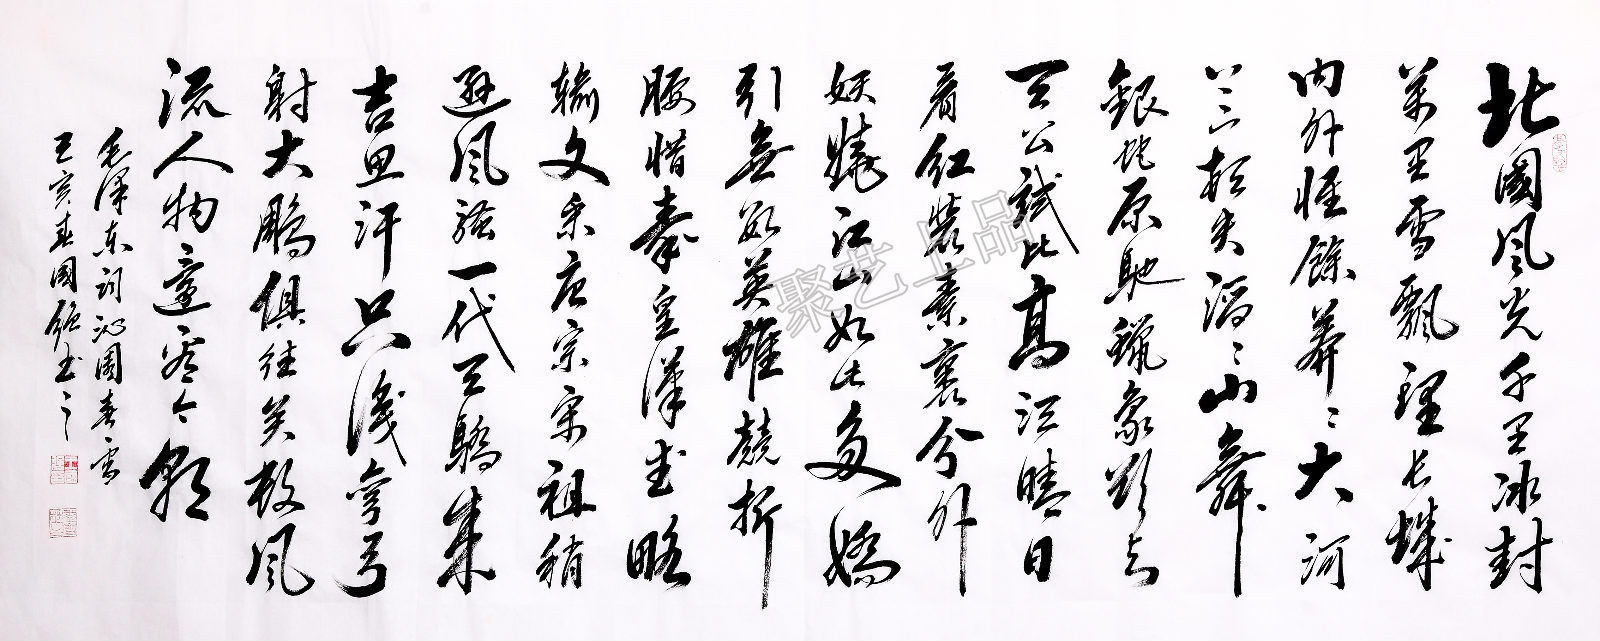 北國風光千里冰封
萬里雪飄望長城
内外惟餘莽々大河
上下頓失滔々山舞
銀蛇原馳蠟象欲与
天公試比高須晴日
看红裝素裹分外
妖嬈江山如此多嬌
引無數英雄競折
腰惜秦皇漢武略
輸文采唐宗宋祖稍
遜風騷一代天驕成
吉思汗只識彎弓
射大鵰俱往矣数風
流人物還看今朝
毛澤東詞沁園春雪
己亥春國強書之
聚艺上品